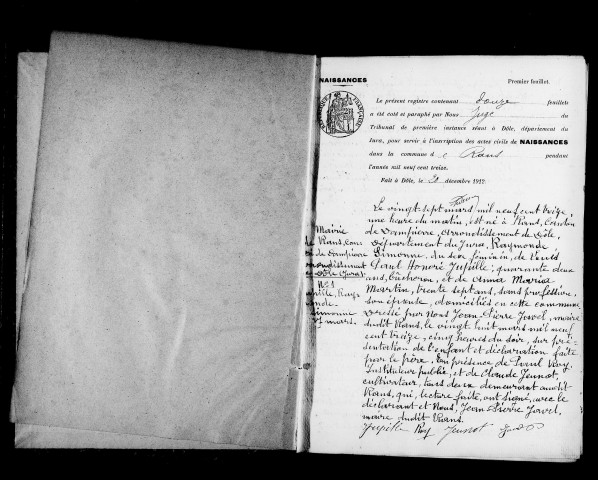 NAISSANCES
Premier feuillet.
Le présent registre contenant douze feuillets
a été coté et paraphé par Nous Juge du
Tribunal de première instance séant à Dôle, département du
Jura, pour servir à l'inscription des actes civils de NAISSANCES
dans la commune de Rans pendant
l'année mil neuf cent treize.
Fait à Dôle, le décembre 1912.
Mairie
de Rans, Canton
de Dampierre
arrondissement
de Dôle (Jura)
No 1
Jupille, Raymonde
Simonne
mars.
Le vingt sept mars, mil neuf cent treize,
une heure du matin, est née à Rans, Canton
de Dampierre, arrondissement de Dôle,
Département du Jura, Raymonde,
Simonne, du sexe féminin, de
Paul Honoré Jupille, quarante deux
ans, bucheron, et de Anna Maria
Martin, trente sept ans, sans profession,
son épouse, domiciliés en cette commune
Dressé par Nous Jean-Pierre Javel, maire
dudit Rans, le vingt huit mars mil neuf
cent treize, cinq heures du soir, sur pré-
sentation de l'enfant et déclaration faite
par le père. En présence de Paul Roy,
Instituteur public, et de Claude Jeunot,
cultivateur, tous deux demeurant audit
Rans, qui, lecture faite, ont signé, avec le
déclarant et Nous, Jean-Pierre Javel,
maire dudit Rans.
Jupille Roy Jeunot